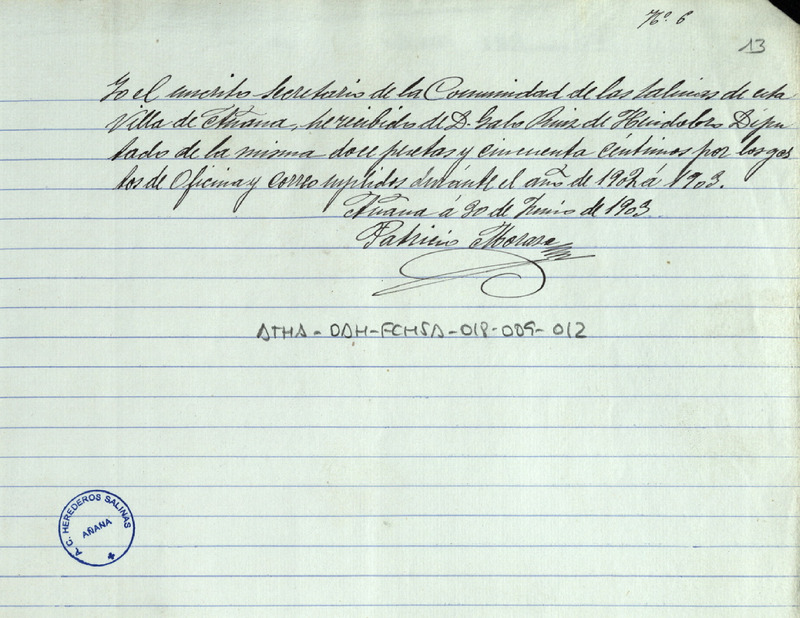 Nº. 6
13
Yo el infrascrito Secretario de la Comunidad de las Salinas de esta
Villa de Añana, he recibido de D. Galo Ruiz de Diputado
tado de la misma doce pesetas y cincuenta céntimos por los gas
tos de Oficina y correo suplidos durante el año de 1902 á 1903.
Añana á 30 de Junio de 1903
Patricio
ATHA-DAH-FCHSA-018-009-012
A.C. HEREDEROS SALINAS
AÑANA